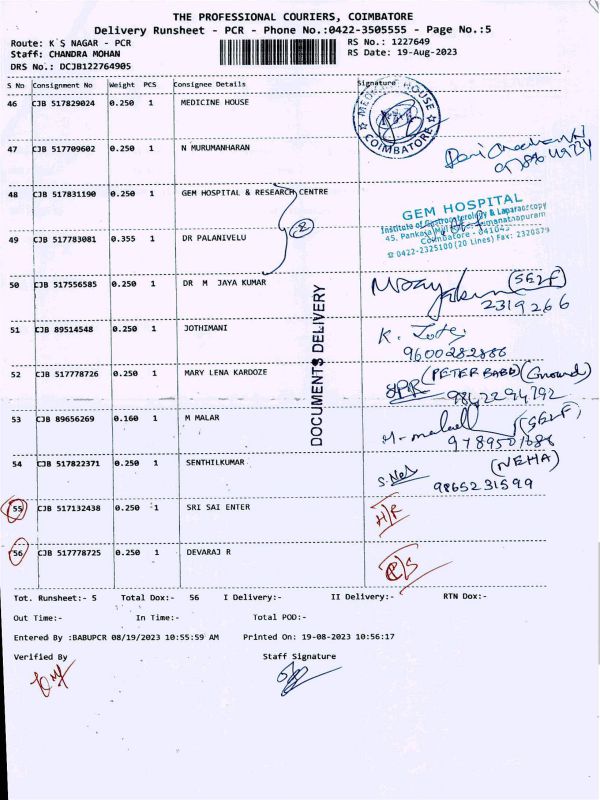 THE PROFESSIONAL COURIERS, COIMBATORE
Delivery Runsheet - PCR - Phone No.:0422-3505555 - Page No.:5
Route: K S NAGAR - PCR RS No.: 1227649
Staff: CHANDRA MOHAN RS Date: 19-Aug-2023
DRS No.: DCJB122764905
S No Consignment No Weight PCS Consignee Details Signature
46 CJB 517829024 0.250 1 MEDICINE HOUSE
MEDICINE HOUSE COIMBATORE
47 CJB 517709602 0.250 1 N MURUMANHARAN
48 CJB 517831190 0.250 1 GEM HOSPITAL & RESEARCH CENTRE
2
GEM HOSPITAL
Institute of Gastroenterology & Laparoscopy
45, Pankaja Mill Road, Ramanathapuram
Coimbatore - 641045
☎ 0422-2325100 (20 Lines) Fax: 2320879
49 CJB 517783081 0.355 1 DR PALANIVELU
50 CJB 517556585 0.250 1 DR M JAYA KUMAR
(SELF)
2319266
DOCUMENTS DELIVERY
51 CJB 89514548 0.250 1 JOTHIMANI
K.
9600282886
52 CJB 517778726 0.250 1 MARY LENA KARDOZE
(PETER BABU) (Ground)
9842294792
53 CJB 89656269 0.160 1 M MALAR
M. (SELF)
54 CJB 517822371 0.250 1 SENTHILKUMAR
(NEHA)
9865231599
55 CJB 517132438 0.250 1 SRI SAI ENTER
H/R
56 CJB 517778725 0.250 1 DEVARAJ R
Tot. Runsheet:- 5 Total Dox:- 56 I Delivery:- II Delivery:- RTN Dox:-
Out Time:- In Time:- Total POD:-
Entered By :BABUPCR 08/19/2023 10:55:59 AM Printed On: 19-08-2023 10:56:17
Verified By Staff Signature